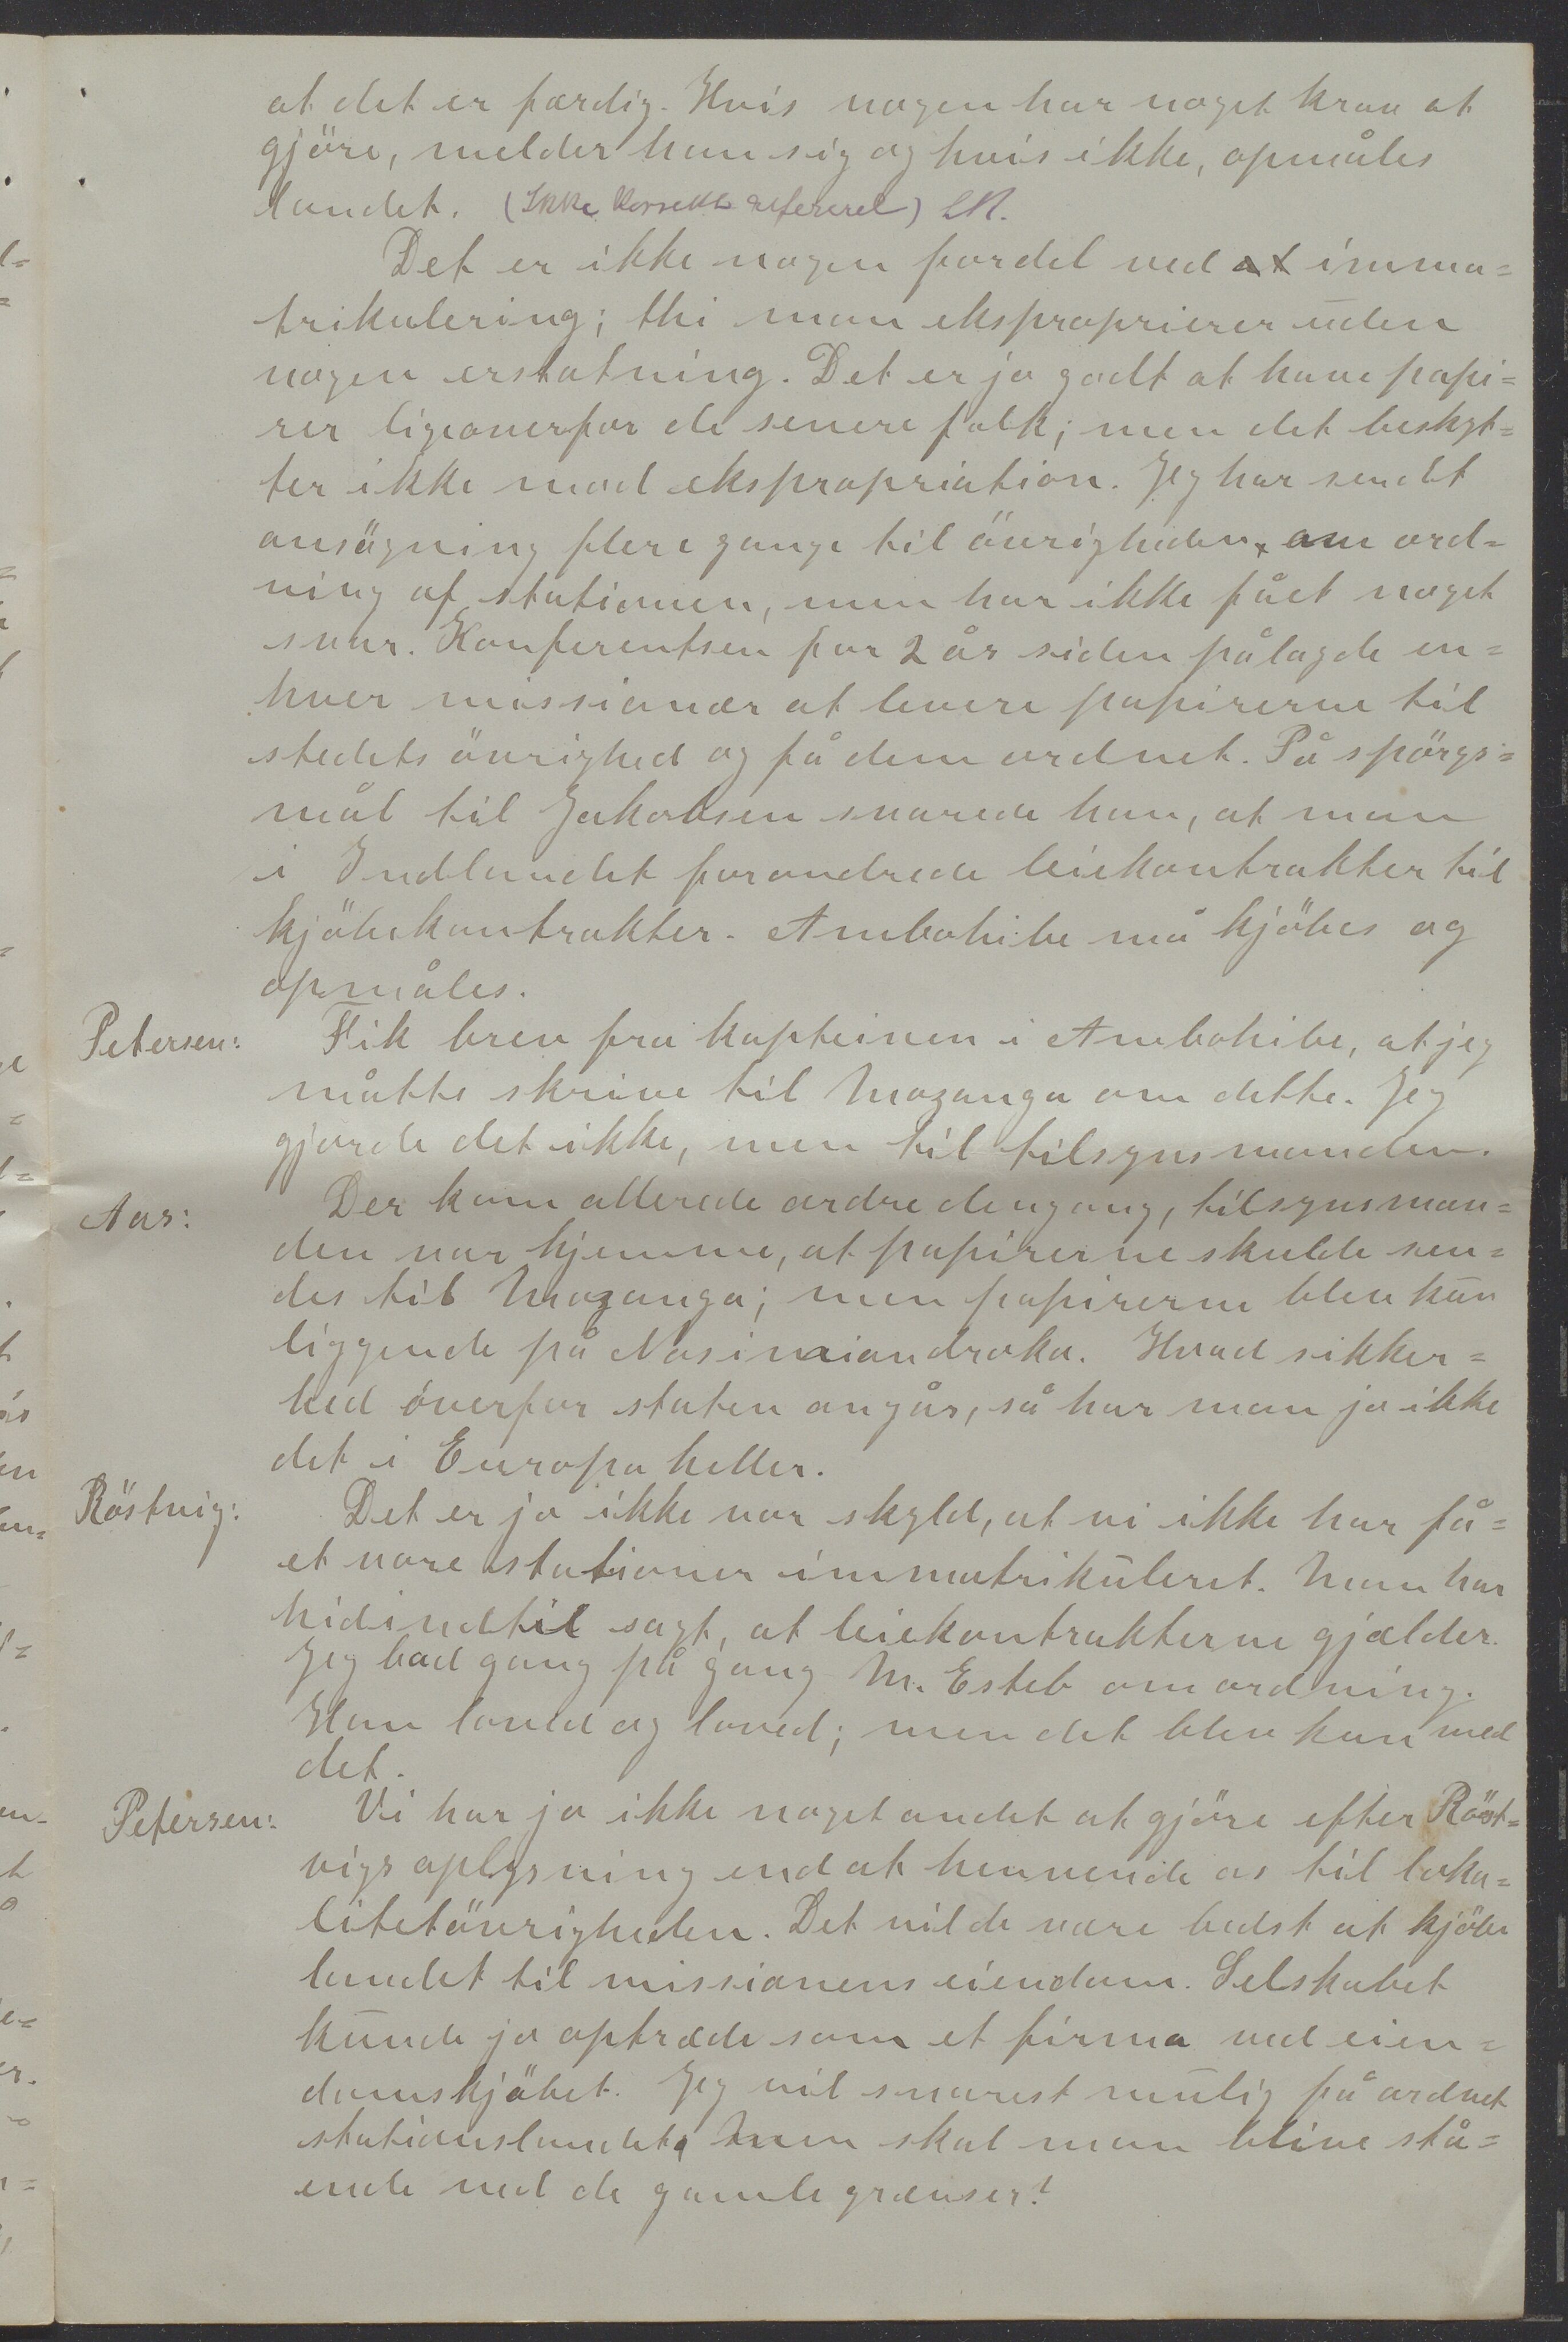 at det er færdig. Hvis nogen har noget krav at
gjöre, melder han sig og hvis ikke, opmåles
landet. (Ikke korrekt refereret)
Det er ikke nogen fordel ved at imma=
trikulering; thi man eksproprierer uden
nogen erstatning. Det er jo godt at have papi=
rer ligeoverfor de senere folk; men det beskyt=
ter ikke mod ekspropriation. Jeg har sendt
ansögning flere gange til övrigheden, om ord=
ning af stationen, men har ikke fået noget
svar. Konferentsen for 2 år siden pålagde en=
hver missionær at levere papirerne til
stedets övrighed og få dem ordnet. På spörgs=
mål til Jakobsen svarede han, at man
i Indlandet forandrede leiekontrakter til
kjöbekontrakter. Ambohibe må kjöbes og
opmåles.
Petersen: Fik brev fra kapteinen i Ambohibe, at jeg
måtte skrive til Mozanga om dette. Jeg
gjorde det ikke, men til tilsynsmanden.
Aas: Der kom allerede ordre dengang, tilsynsman=
den var hjemme, at papirerne skulde sen=
des til Mozanga; men papirerne blev kun
liggende på Nosimiandroka. Hvad sikker=
hed överfor staten angår, så har man jo ikke
det i Europa heller.
Röstvig: Det er jo ikke vor skyld, at vi ikke har få=
et vore stationer immatrikuleret. Man har
hidindtil sagt, at leiekontrakterne gjælder.
Jeg bad gang på gang M. Esteb om ordning.
Han loved og loved; men det blev kun med
det.
Petersen: Vi har jo ikke noget andet at gjöre efter Röst=
vigs oplysning end at henvende os til loka=
litetövrigheden. Det vilde være bedst at kjöbe
landet til missionens eiendom. Selskabet
kunde jo optræde som et firma ved eien=
domskjöbet. Jeg vil snarest mulig få ordnet
stationslandet, Men skal man blive stå=
ende ved de gamle grænser?